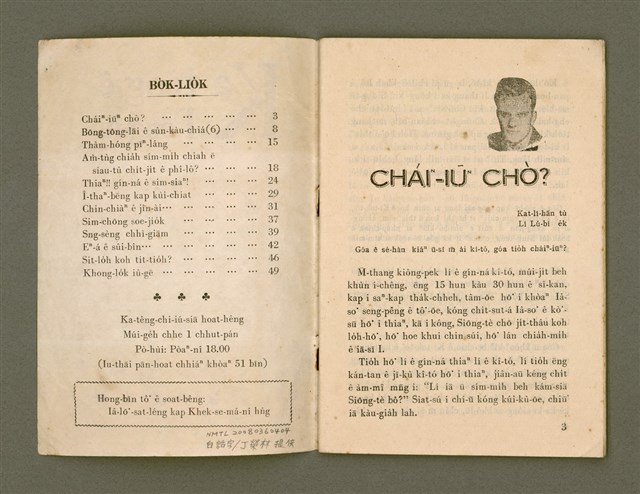 BO̍K-LIO̍K
Cháiⁿ-iūⁿ chò? ··· ··· ··· ··· 3
Bông-tông-lāi ê sûn-kàu-chiá(6) ··· ··· 8
Thàm-hóng pīⁿ-lâng ··· ··· ··· 15
Ah-tǹg chia̍h sím-mih chiah ē
siau-tû chit-ji̍t ê phî-lô? ··· ··· 18
Thiaⁿ!! gín-ná ê sim-siaⁿ! ··· ··· 24
Î-thaⁿ-bēng kap kúi-chiat ··· ··· 29
Chin-chiàⁿ ê jîn-ài··· ··· ··· ··· 31
Sim-chōng soe-jio̍k ··· ··· ··· 37
Sng-sèng chhì-giām ··· ··· ··· 39
Eⁿ-á ê súi-bīn··· ··· ··· ··· 42
Sit-lo̍h koh tit-tio̍h? ··· ··· ··· 46
Khong-lo̍k iú-gē ··· ··· ··· ··· 49
Ka-têng-chi-iú-siā hoat-hêng
Múi-ge̍h chhe 1 chhut-pán
Pò-hùi: Pòaⁿ-nî 18.00
(Iu-thāi pān-hoat chhiáⁿ khòaⁿ 51 bīn)
Hong-bīn tô͘ ê soat-bêng:
Iâ-lō͘-sat-léng kap Khek-se-má-nî hn̂g
NMTL 20080360404
CHÁIⁿ-IŪⁿ CHÒ?
Kat-lī-hān tù
Lí Lú-bí e̍k
Góa ê sè-hàn kiáⁿ ū-sî m̄ ài kî-tó, góa tio̍h cháiⁿ-iūⁿ?
M̄-thang kiông-pek lí ê gín-ná kî-tó, múi-ji̍t beh
khùn í-chêng, ēng 15 hun kàu 30 hun ê sî-kan,
kap i saⁿ-kap tha̍k-chheh, tâm-ōe hō͘ i khòaⁿ Iâ-
so͘ seng-pêng ê tô͘-ōe, kóng chi̍t-sut-á Iâ-so͘ ê kò͘-
sū hō͘ i thiaⁿ, kā i kóng, Siōng-tè chō ji̍t-thâu koh
lo̍h-hō͘, hō͘ hoe khui chin-súi, hō͘ lán chiáh-mi̍h
ê iā-sī I.
Tio̍h hō͘ lí ê gín-ná thiaⁿ lí ê kî-tó, lí tio̍h ēng
kán-tan ê jī-kù kî-tó hō͘ i thiaⁿ, jiân-āu kéng chi̍t
ê àm-mî mn̄g i: "Lí iā ū sím-mih beh kám-siā
Siōng-tè bô?" Siat-sú i chí-ū kóng kúi-kù-ōe, chiūⁿ
iā kàu-gia̍h lah.
3